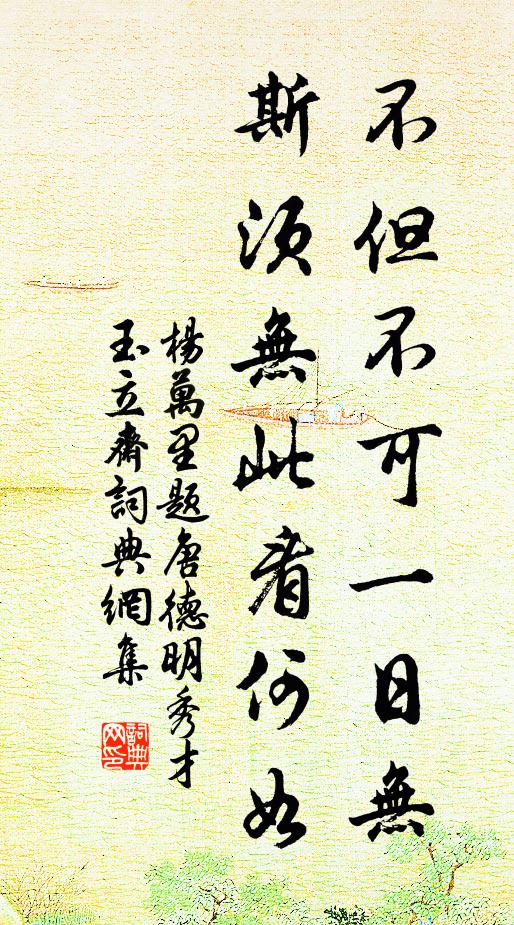 不但不可一日無
斯須無此看何如
楊萬里題唐德明秀才
玉立齋詞典網集
詞典
网印